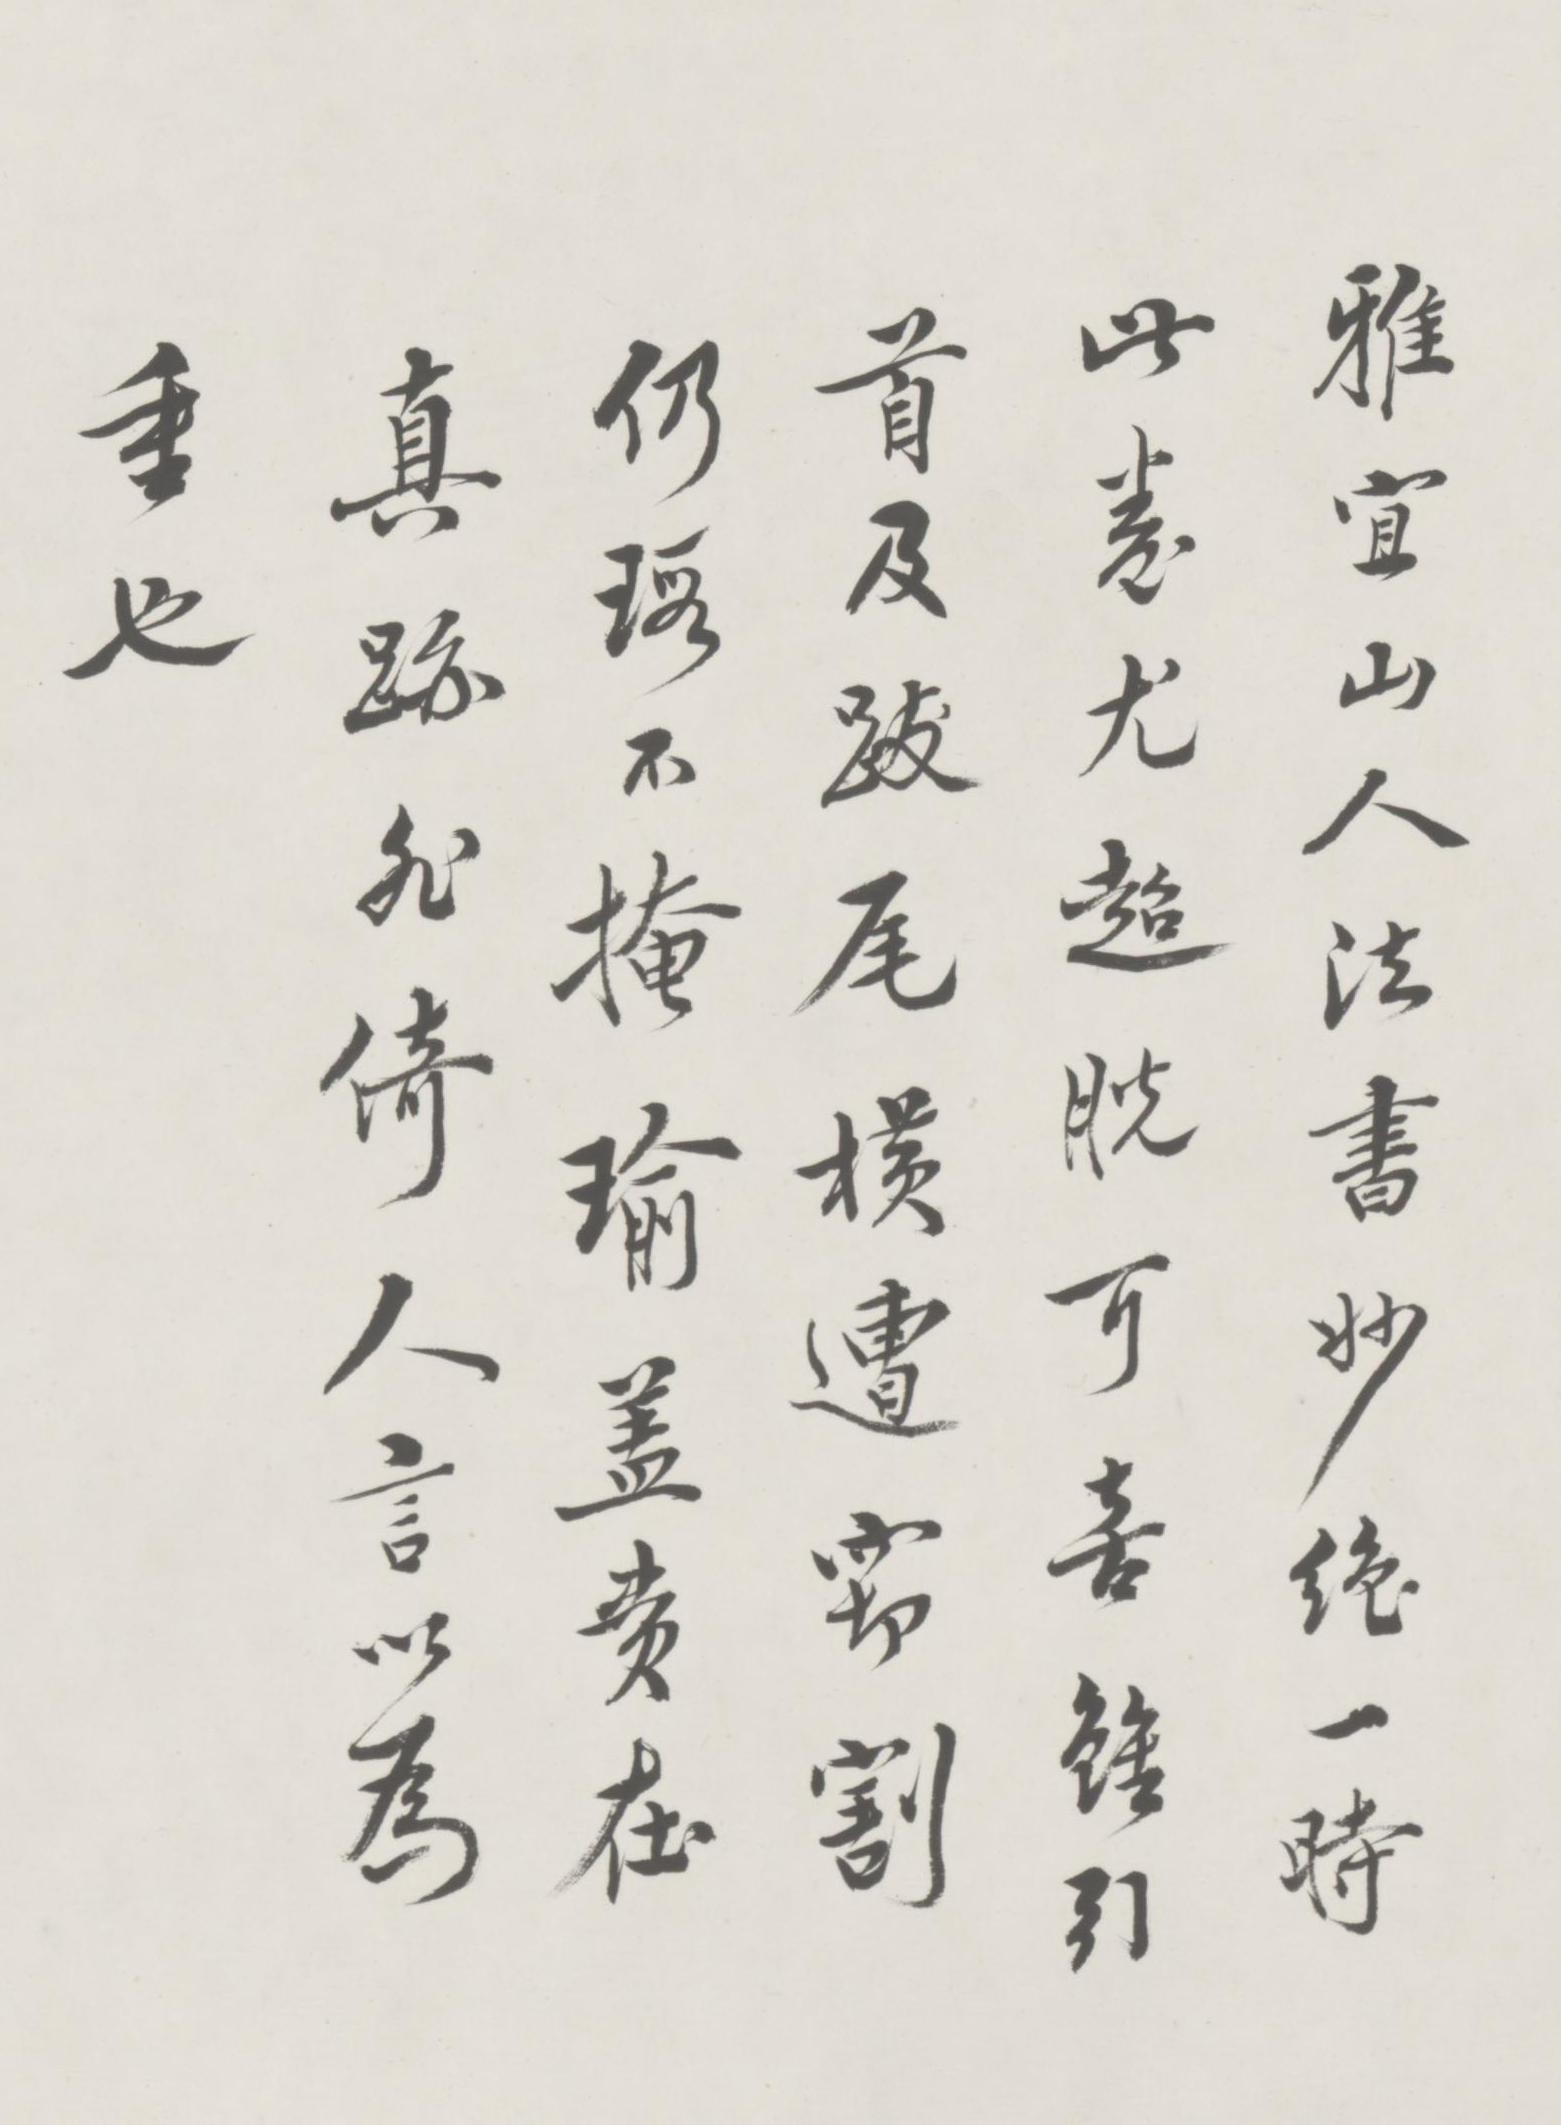 雅宜山人法書妙絶一時
此卷尤超脱可喜雖引
首及跋尾橫遭窃割
仍瑕不掩瑜盖貴在
真跡非倚人言以為
重也